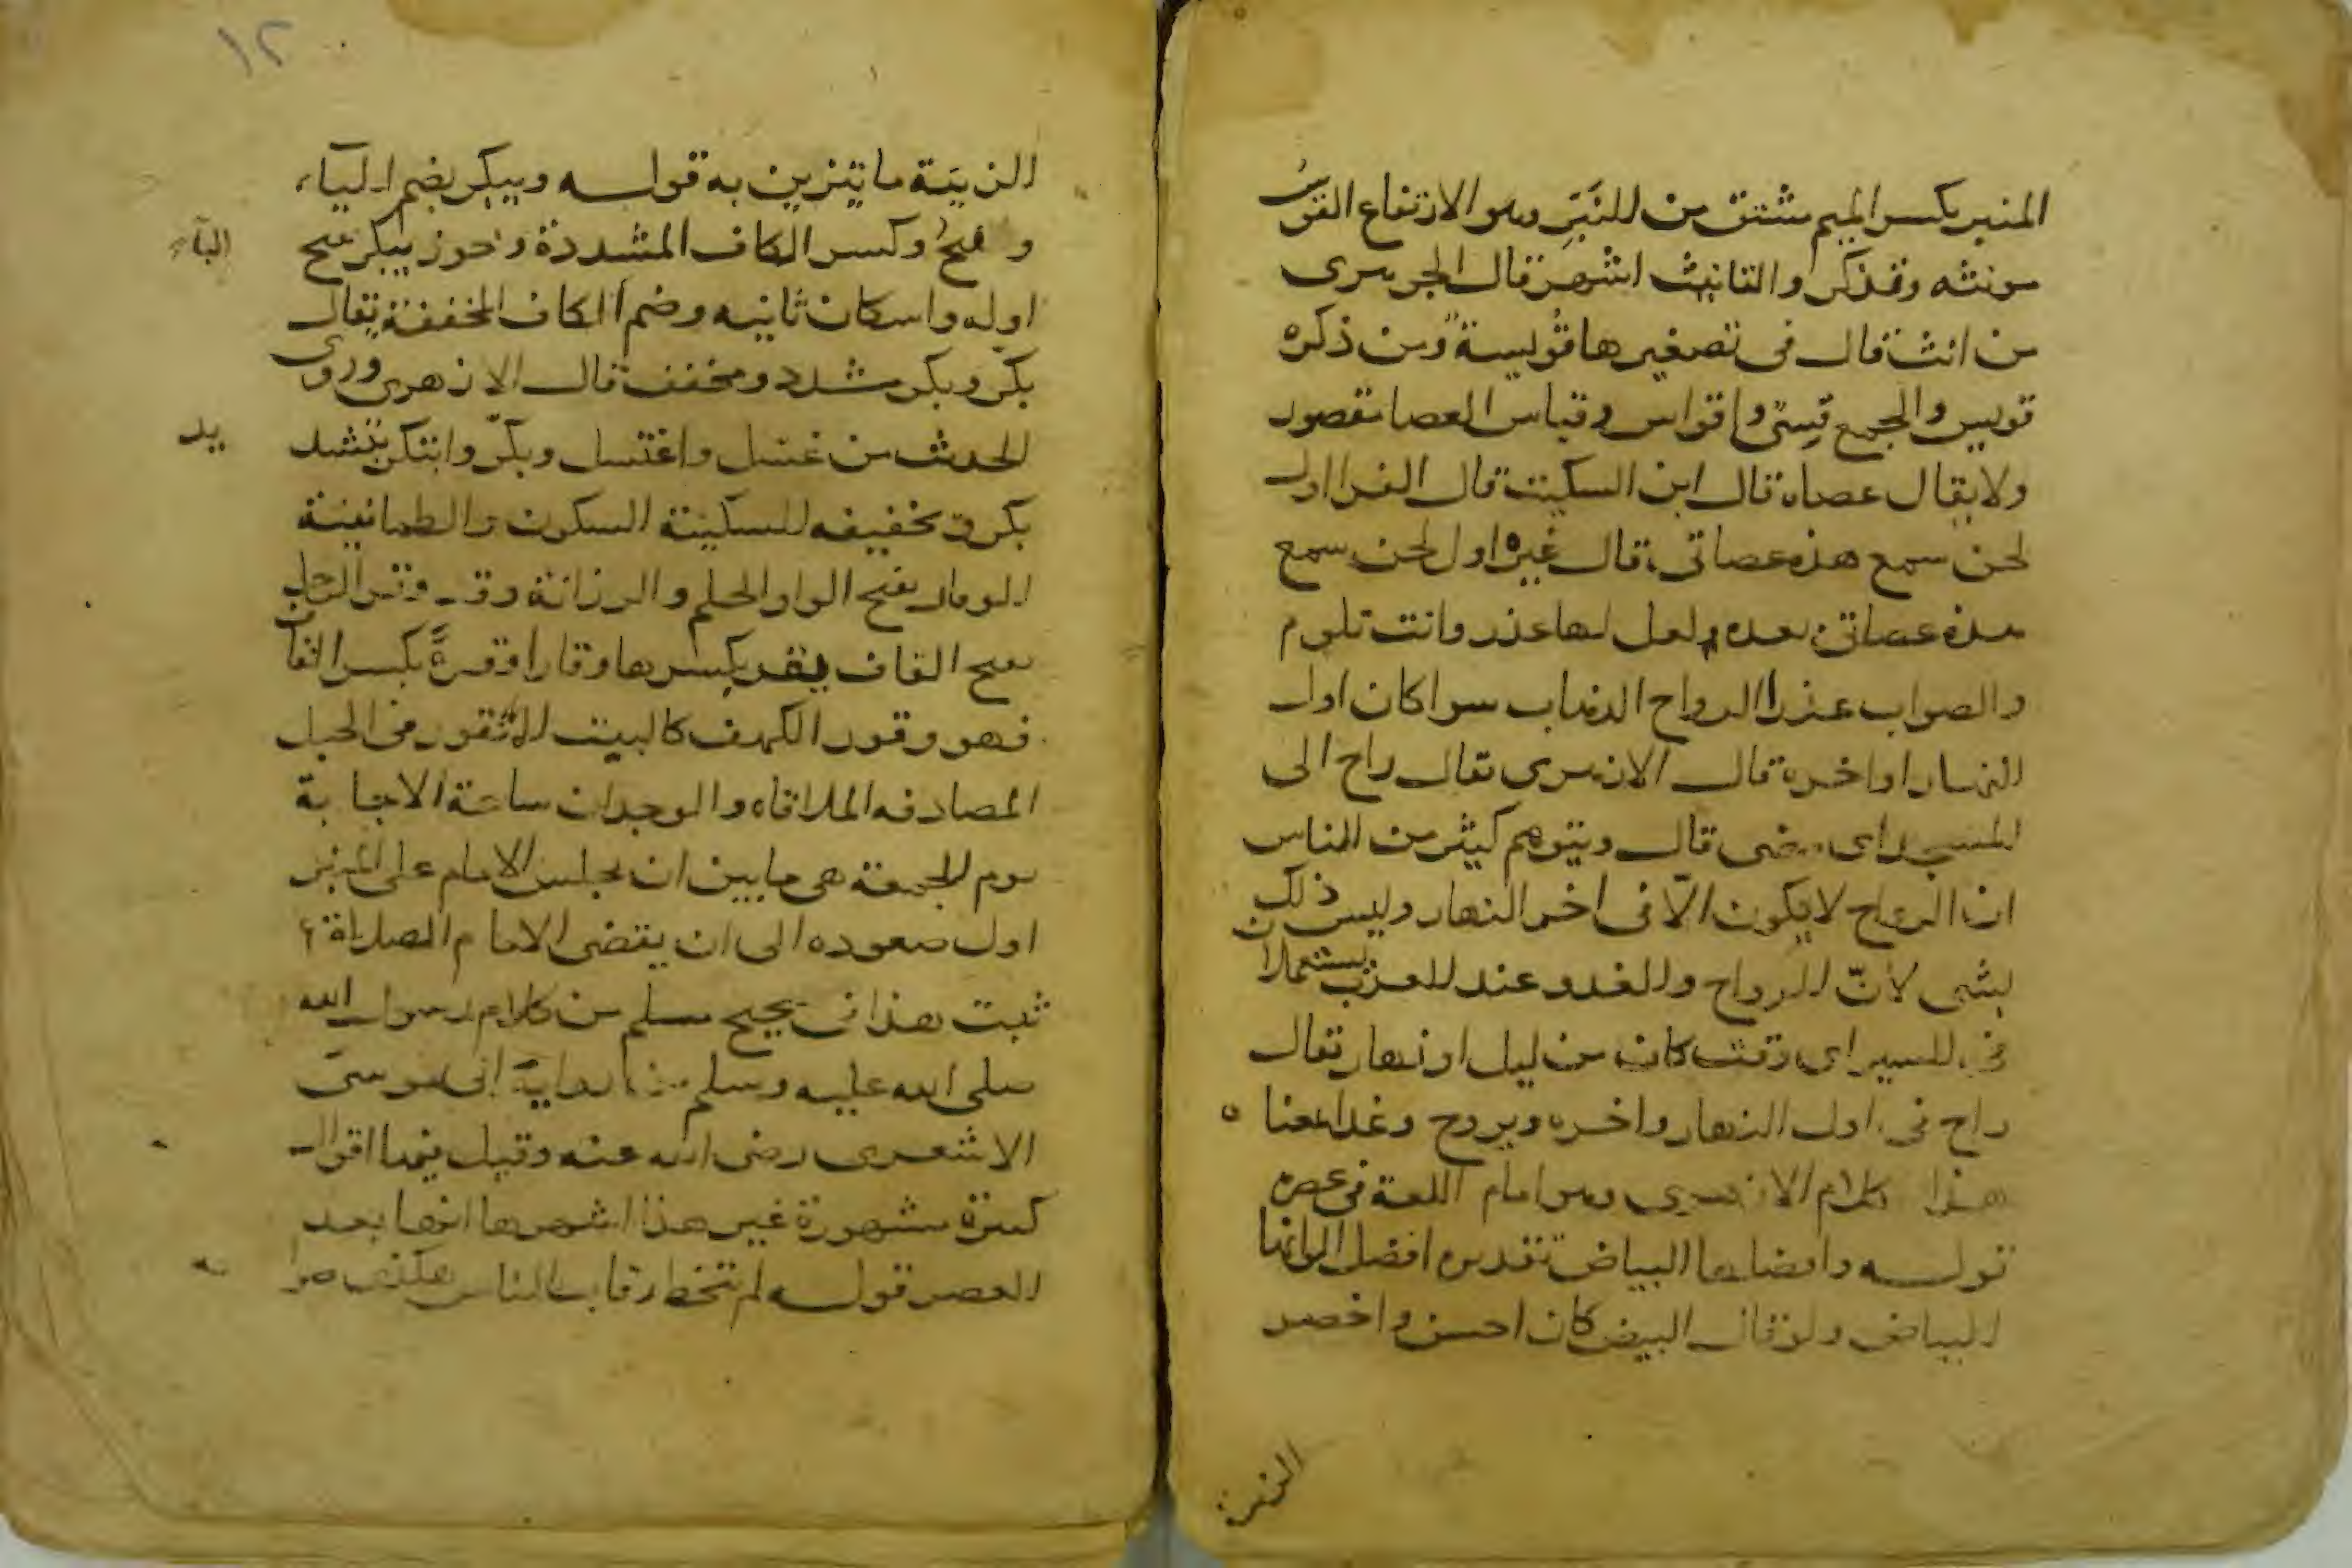 المنبر بكسر الميم مشتق من النبر وهو الارتفاع القوس
مونثه وقد تذكر والتانيث اشهر قال الجوهرى
من انث قال فى تصغيرها قويسة ومن ذكره
قويس والجمع قسىّ واقواس وقياس العصا مقصور
ولا يقال عصاه قال ابن السكيت قال الفرا اول
لحن سمع هذه عصاتى قال غيره اول لحن سمع
هذه عصاتى بعده لعل لها عذر وانت تلوم
والصواب عذرا الرواح الذهاب سوا كان اول
النهار او اخره قال الازهرى يقال راح الى
المسجد اى مضى قال ويتوهم كثير من الناس
ان الرواح لا يكون الّا فى اخر النهار وليس ذلك
بشى لانّ الرواح والغدو عند العرب يستعملان
فى المسير اى وقت كان من ليل او نهار يقال
راح فى اول النهار واخره ويروح وغدا بمعنا ه
هذا كلام الازهرى وهو امام اللغة فى عصره
قوله وافضلها البياض تقديره افضل الوانها
البياض ولو قال البيض كان احسن واخصر
الزينة
١٢
الزينة ما يتزين به قوله ويبكر بضم اليآء
و فتح وكسر الكاف المشددة وجوز يبكر بفتح
البآء
اوله واسكان ثانيه وضم الكاف المخففة يقال
بكر وبكّر مشدد ومخفف قال الازهرى وروى
الحديث من غسل واغتسل وبكّر وابتكر بتشد
يد
بكر وتخفيفه السكينة السكون والطمانينة
الوقار بفتح الواو الحلم والرزانة وقد وقر الرجل
بفتح القاف يقر بكسرها وقارا وقرةً بكسر القاف
فهو وقور الكهف كالبيت المنقور فى الجبل
المصادفه الملاقاه والوجدان ساعة الاجابة
يوم الجمعة هى ما بين ان يجلس الامام على المنبر
اول صعوده الى ان يقضى الامام الصلاة
ثبت هذا فى صحيح مسلم من كلام رسول الله
صلى الله عليه وسلم من رواية ابى موسى
الاشعرى رضى الله عنه وقيل فيها اقوال
كثيرة مشهورة غير هذا اشهرها انها بعد
العصر قوله لم يتخط رقاب الناس هكذى